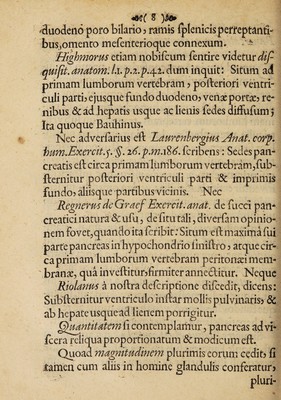 ( 8 )
duodeno poro bilario, ramis splenicis perreptanti-
bus, omento mesenterioque connexum.
Highmorus etiam nobiscum sentire videtur dis-
quisit. anatom. l. 1. p. 2. p. 42. dum inquit: Situm ad
primam lumborum vertebram, posteriori ventri-
culi parti, ejusque fundo duodeno, venæ portæ, re-
nibus & ad hepatis usque ac lienis sedes diffusum;
Ita quoque Bauhinus.
Nec adversarius est Laurenbergius Anat. corp.
hum. Exercit. 5. §. 26. p. m. 186. scribens: Sedes pan-
creatis est circa primam lumborum vertebram, sub-
sternitur posteriori ventriculi parti & imprimis
fundo, aliisque partibus vicinis. Nec
Regnerus de Graef Exercit. anat. de succi pan-
creatici natura & usu, de situ tali, diversam opinio-
nem fovet, quando ita scribit: Situm est maximâ sui
parte pancreas in hypochondrio sinistro, atque cir-
ca primam lumborum vertebram peritonæi mem-
branæ, quâ investitur, firmiter annectitur. Neque
Riolanus à nostra descriptione discedit, dicens:
Substernitur ventriculo instar mollis pulvinaris, &
ab hepate usque ad lienem porrigitur.
Quantitatem si contemplamur, pancreas ad vi-
scera reliqua proportionatum & modicum est.
Quoad magnitudinem plurimis eorum cedit, si
tamen cum aliis in homine glandulis conferatur,
pluri-